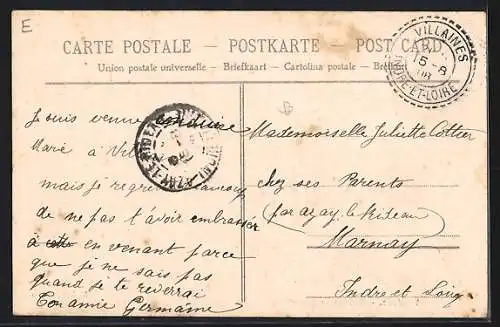 E
CARTE POSTALE - POSTKARTE - POST CARD
Union postale universelle - Briefkaart - Cartolina postale -
VILLAINES
15-8
INDRE-ET-LOIRE
AZAY-LE-RIDEAU
Je suis venue conduire
Marie à
mais je regrette beaucoup
de ne pas t'avoir embrassér
à en venant parce
que je ne sais pas
quand je te reverrai
Ton amie Germaine
Mademoiselle Juliette Cottier
chez ses Parents
(par azay le Rideau)
Marnay
Indre et Loire